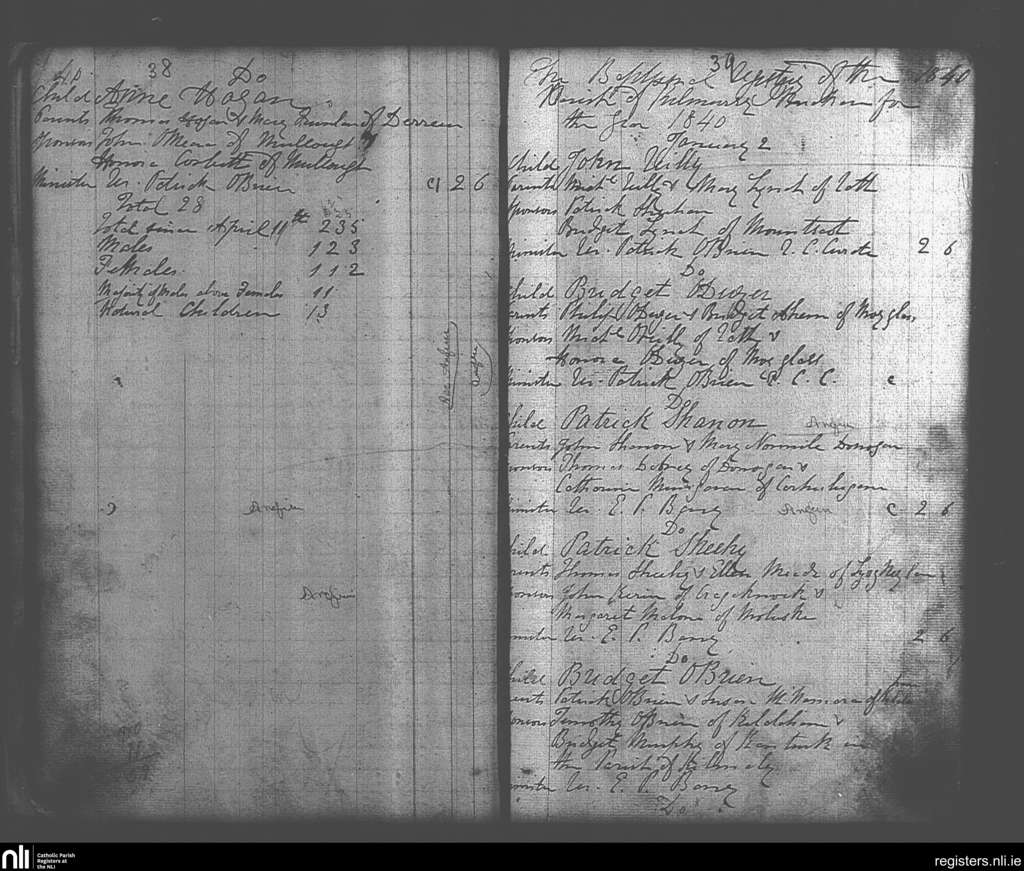 40 38 Do
Child Anne Hogan
Parents Thomas Hogan & Mary of Derreen
Sponsors John OMeara of Mullough
Honora Corbett of Mullough
Minister Rev. Patrick OBrien C 2 6
Total 28
Total since April 11th 235
Males 123
Females 112
Majority of Males above Females 11
Natural Children 13
39
The Baptismal Register of the 1840
Parish of Kilmurry for
the Year 1840
January 2
Child John Reilly
Parents Michl Reilly & Mary Lynch of
Sponsors Patrick
Bridget Lynch of Mountscot
Minister Rev. Patrick OBrien R. C. Curate 2 6
Do
Child Bridget ODwyer
Parents Philip ODwyer & Bridget Ahern of Moyglass
Sponsors Michl Reilly of &
Honora ODwyer of Moyglass
Minister Rev. Patrick OBrien R. C. C. C
Do
Child Patrick Shanon
Parents John Shanon & Mary Normile Donogan
Sponsors Thomas of Donogan &
Catherine of
Minister Rev. E. P. Barry C 2 6
Do
Child Patrick Sheehy
Parents Thomas Sheehy & Ellen Meade of
Sponsors John of Cragaknock &
Margaret Malone of
Minister Rev. E. P. Barry 2 6
Do
Child Bridget OBrien
Parents Patrick OBrien & Susan McNamara of
Sponsors Timothy OBrien of &
Bridget Murphy of in
the Parish of
Minister Rev. E. P. Barry
Do
nli
Catholic Parish
Registers at
the NLI
registers.nli.ie